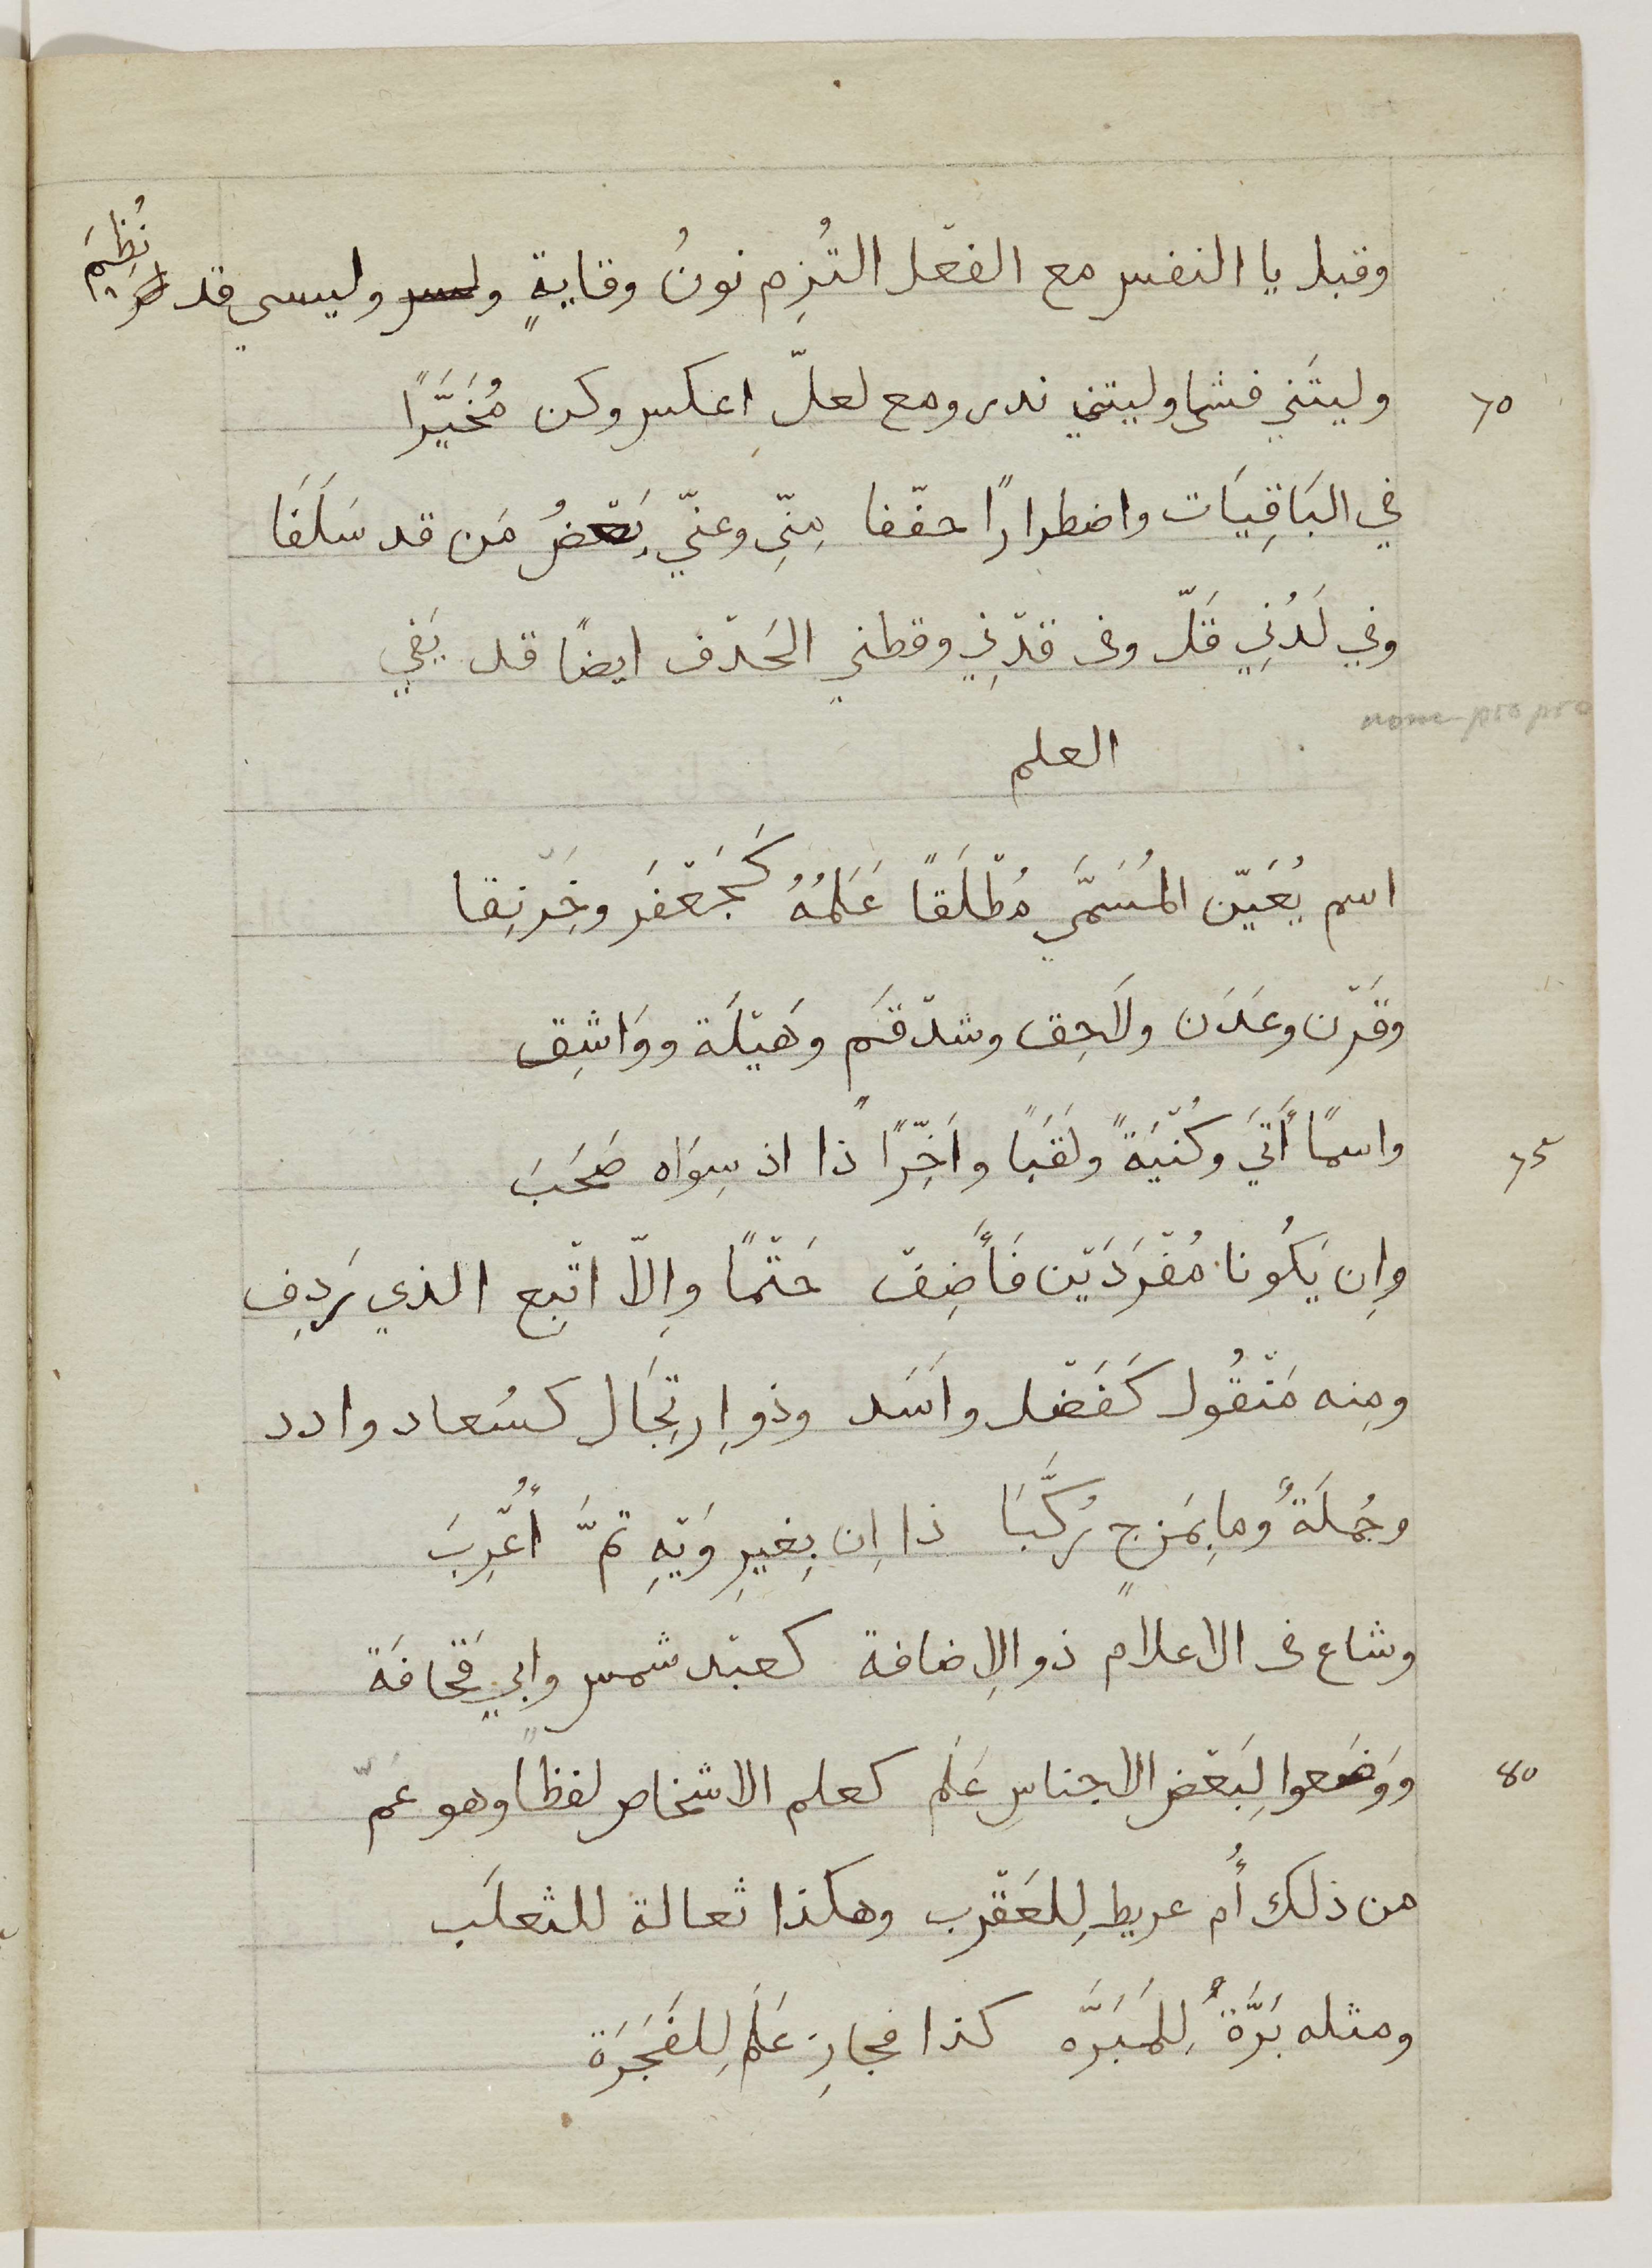 وقبل يا النفس مع الفعْل التُزِم نونُ وقايةٍ وليسي قد نُظِمَ
70 وليتَني فشا وليتي ندر ومع لعلّ اِعكس وكن مُخَيَّرًا
في البَاقِيَات واضطرارًا خفّفا مِنِّي وعنّي بَعْضُ مَن قد سَلَفَا
وفي لَدُنِي قَلّ وفى قدْنِي وقطني الحَذْف ايضًا قد يَفي
nome propro
العلم
اسم يُعَيّن المُسَمَّي مُطْلَقًا عَلَمُهُ كَجَعْفَر وخِرْنِقا
وقَرْن وعَدَن ولَاحِق وشذْقَم وهَيْلَة ووَاشِق
75 واسمًا أَتَي وكُنْيَةً ولَقَبًا واَخِّرًا ذا اذ سِوَاه صَحَبَ
وإِن يَكُونا مُفْرَدَيْن فَأَضِفْ حَتْمًا وإِلّا اتْبِع الذي رَدِف
ومِنه مَنْقُول كَفَضْل واَسَد وذو اِرتِجَال كسُعاد وادد
وجُملَةٌ وما بِمَزجٍ رُكَّبَا ذا اِن بِغيرِ وَيْهِ تمَّ أُعْرِبَ
وشاع فى الاعلام ذو الإضافة كعبْد شمس وابي قحافَة
80 ووَضَعوا لِبَعْض الاجناسِ عَلَم كعلم الاشخاص لفظًا وهو عَمّ
من ذلك أُم عريط لِلعَقْرب وهكذا ثعالة للثعلَب
ومثله بَرَّةٌ لِلمَبَرَّه كذا فجارِ عَلَم لِلفَجَرَة